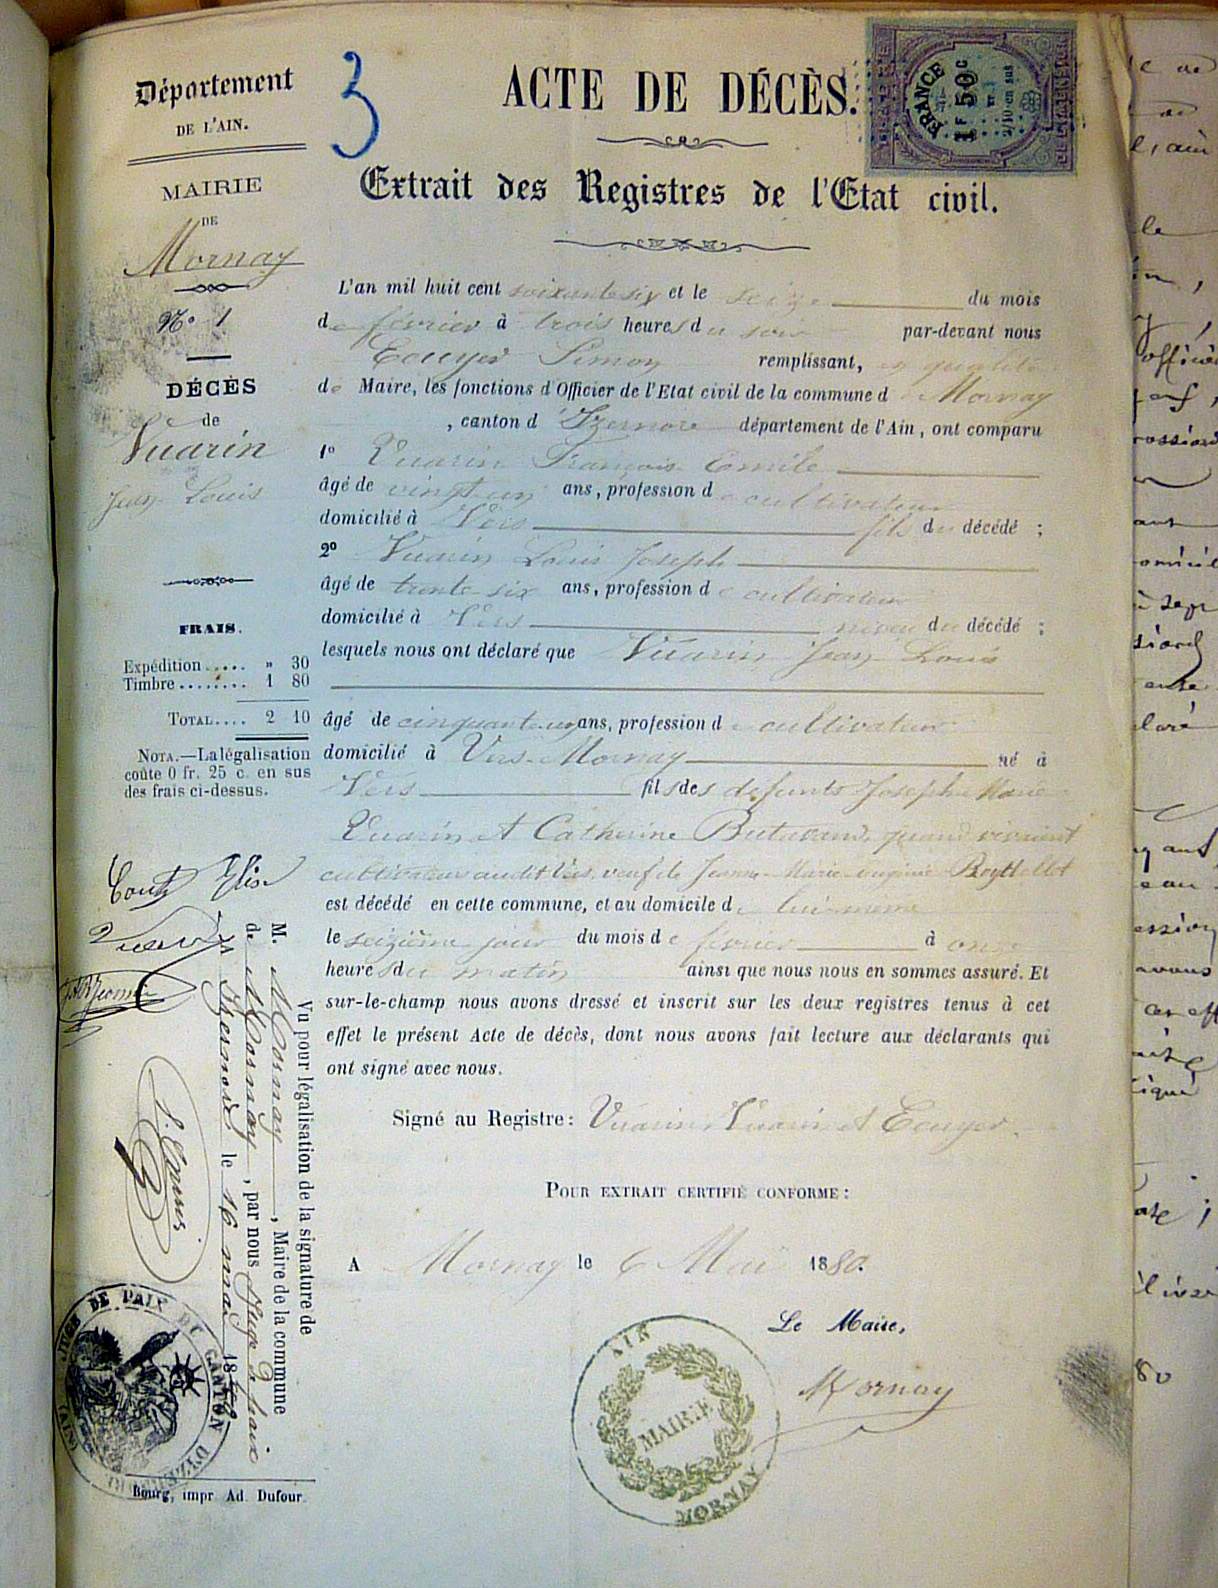 Département
DE L'AIN.
MAIRIE
DE
Mornay
N° 1
DÉCÈS
de
Vuarin
Jean Louis
FRAIS.
Expédition..... » 30
Timbre........ 1 80
TOTAL.... 2 10
NOTA.—La légalisation
coûte 0 fr. 25 c. en sus
des frais ci-dessus.
3
ACTE DE DÉCÈS.
FRANCE
1F 50c
2/10 en sus
Extrait des Registres de l'Etat civil.
L'an mil huit cent soixante six et le seize du mois
de février à trois heures du soir par-devant nous
Ecuyer Simon remplissant, en qualité
de Maire, les fonctions d'Officier de l'Etat civil de la commune de Mornay
, canton d'Izernore département de l'Ain, ont comparu
1° Vuarin François Emile
âgé de vingt un ans, profession de cultivateur
domicilié à Vers fils du décédé ;
2° Vuarin Louis Joseph
âgé de trente six ans, profession de cultivateur
domicilié à Vers neveu du décédé ;
lesquels nous ont déclaré que Vuarin Jean Louis
âgé de cinquante un ans, profession de cultivateur
domicilié à Vers-Mornay né à
Vers fils des defunts Joseph Marie
Vuarin et Catherine quand vivaient
cultivateurs audit Vers, veuf de Jeanne Marie
est décédé en cette commune, et au domicile de lui-meme
le seizième jour du mois de février à onze
heures du matin ainsi que nous nous en sommes assuré. Et
sur-le-champ nous avons dressé et inscrit sur les deux registres tenus à cet
effet le présent Acte de décès, dont nous avons fait lecture aux déclarants qui
ont signé avec nous.
Signé au Registre: Vuarin, Vuarin et Ecuyer.
POUR EXTRAIT CERTIFIÉ CONFORME :
A Mornay le 6 Mai 1880.
Le Maire,
Mornay
AIN
MAIRIE
MORNAY
Vu pour légalisation de la signature de
M. Mornay, Maire de la commune
de Mornay, par nous Juge de paix
Izernore le 16 mai 1880
JUGE DE PAIX DU CANTON D'IZERNORE
Bourg, impr Ad. Dufour.